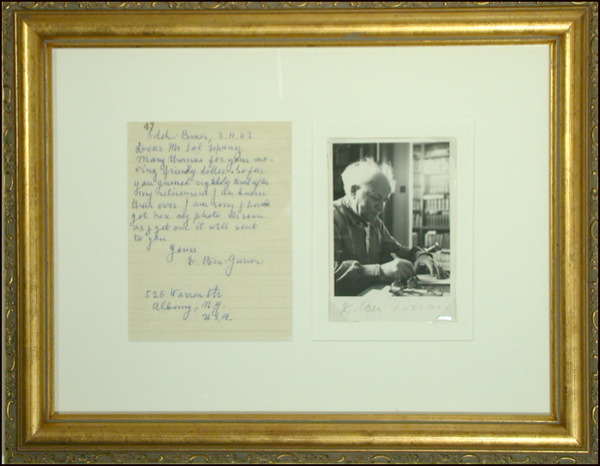 47
Sdeh-Boker, 3.11.63
Dear Mr Sol
Many thanks for your mo-
ving friendly letter. So far
you guessed rightly that after
my retirement I am busier
than ever. I am sorry I have
got here my photo. As soon
as I get one it will sent
to you
Yours
D. Ben-Gurion
526 Warren Str
Albany, N.Y.
U.S.A
D. Ben Gurion